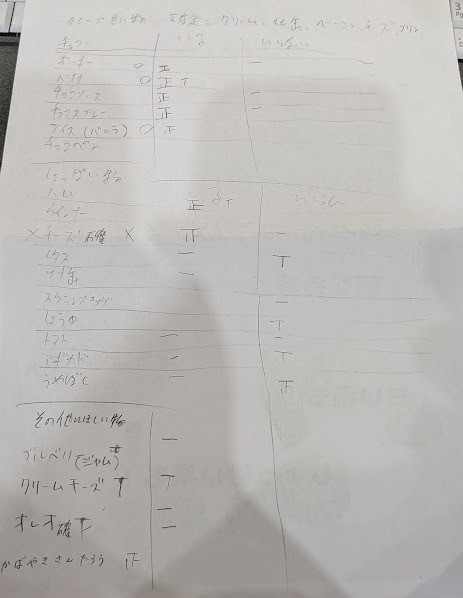 クレープ甘い物 確定=クリーム、ツナ缶、ベーコン、チーズ、プリン
チョコ いる いらない
ポッキー ○ 正 一
トッポ ○ 正 T
チョコソース 正 一
チョコスプレー 正
アイス(バニラ) ○ 正
チョコペン
しょっぱい物
いる いらん
ウインナー 正 T
×チーズ確 × 正 一
レタス 一 T
ツナ缶
スクランブルエッグ 一
しょうゆ T
トマト 一 一
アボカド 一 T
うめぼし 一 正
その他ほしい物
ブルーベリ(ジャム) 一
クリームチーズ T
オレオ確
かばやきさんたろう 正